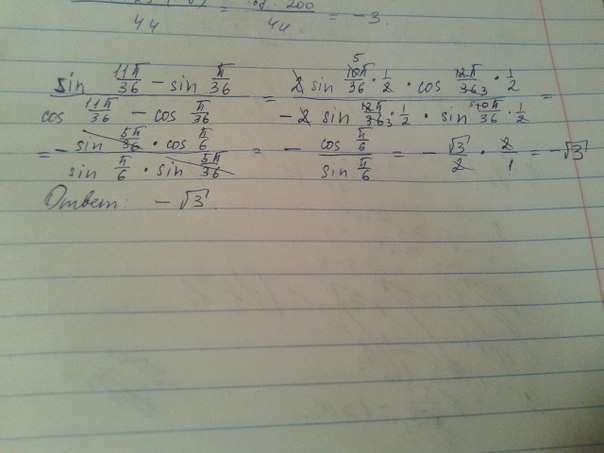 44 = 44 = -3.
sin 11π/36 - sin π/36 / cos 11π/36 - cos π/36 = 2 sin 10π/36 · 1/2 · cos 12π/36 · 1/2 / -2 sin 12π/36 · 1/2 · sin 10π/36 · 1/2 =
= - sin 5π/36 · cos π/6 / sin π/6 · sin 5π/36 = - cos π/6 / sin π/6 = - √3/2 · 2/1 = -√3
Ответ: - √3.